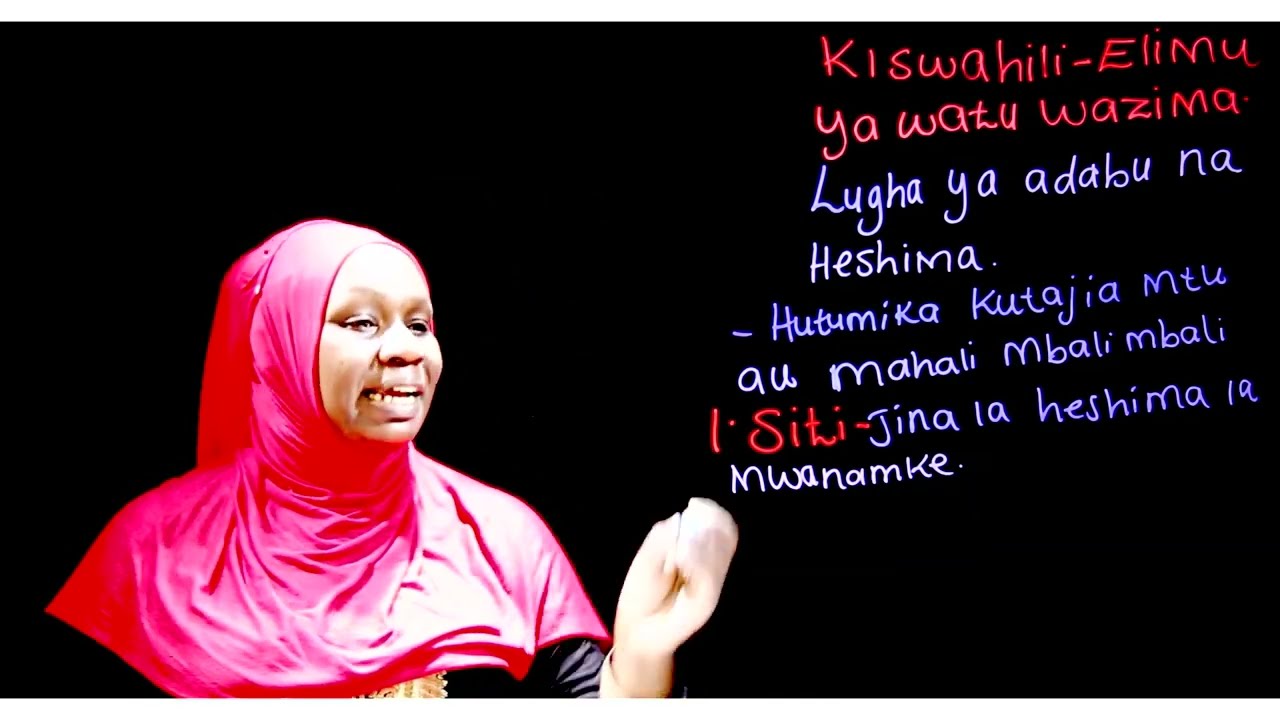 Kiswahili-Elimu
ya watu wazima.
Lugha ya adabu na
Heshima.
- Hutumika kutajia mtu
au mahali mbali mbali
1. Siti-Jina la heshima la
Mwanamke.